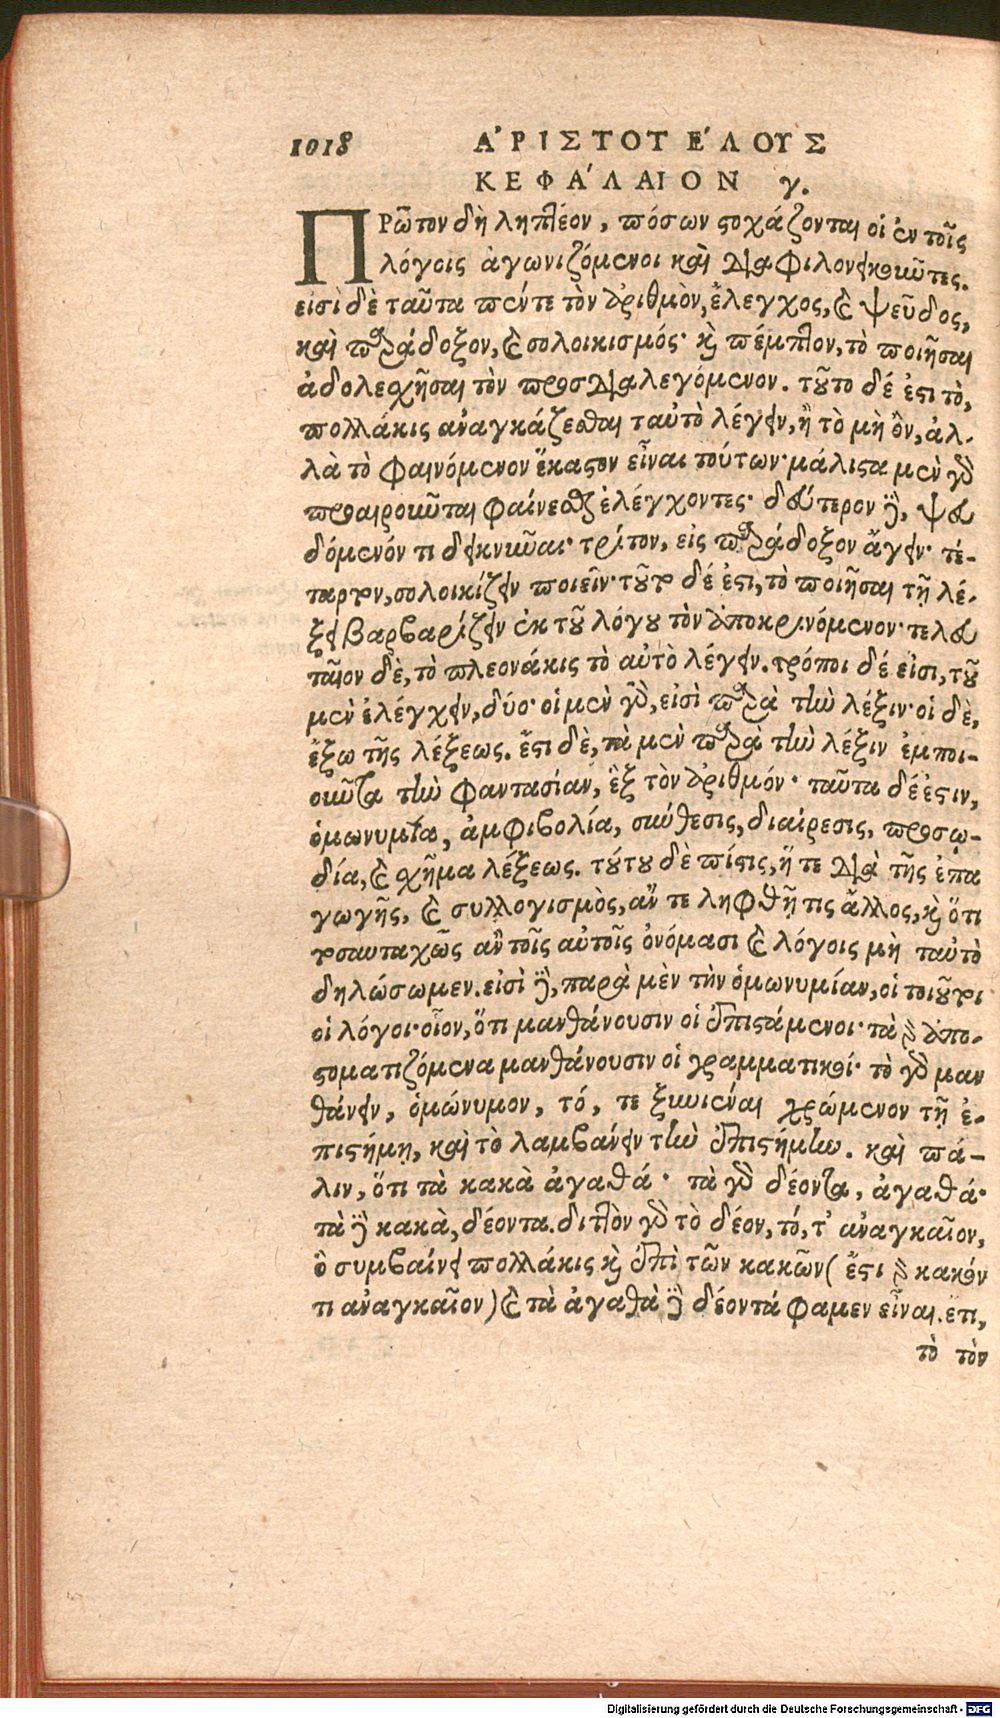 1018 ἈΡΙΣΤΟΤΈΛΟΥΣ
ΚΕΦΆΛΑΙΟΝ γ.
ΠΡῶτον δὴ ληπτέον, πόσων στοχάζονται οἱ ἐν τοῖς
λόγοις ἀγωνιζόμενοι καὶ διαφιλονεικοῦντες.
εἰσὶ δὲ ταῦτα πέντε τὸν ἀριθμὸν, ἔλεγχος, καὶ ψεῦδος,
καὶ παράδοξον, καὶ σολοικισμός· καὶ πέμπτον, τὸ ποιῆσαι
ἀδολεσχῆσαι τὸν προσδιαλεγόμενον. τοῦτο δέ ἐστι τὸ,
πολλάκις ἀναγκάζεσθαι ταὐτὸ λέγειν, ἢ τὸ μὴ ὂν, ἀλ-
λὰ τὸ φαινόμενον ἕκαστον εἶναι τούτων· μάλιστα μὲν γὰρ
προαιροῦνται φαίνεσθαι ἐλέγχοντες· δεύτερον δὲ, ψευ
δόμενόν τι δεικνύναι· τρίτον, εἰς παράδοξον ἄγειν· τέ-
ταρτον, σολοικίζειν ποιεῖν· τοῦτο δέ ἐστι, τὸ ποιῆσαι τῇ λέ-
ξει βαρβαρίζειν ἐκ τοῦ λόγου τὸν ἀποκρινόμενον· τελευ
ταῖον δὲ, τὸ πλεονάκις τὸ αὐτὸ λέγειν. τρόποι δέ εἰσι, τοῦ
μὲν ἐλέγχειν, δύο· οἱ μὲν γὰρ, εἰσὶ παρὰ τὴν λέξιν· οἱ δὲ,
ἔξω τῆς λέξεως. ἔστι δὲ, τὰ μὲν παρὰ τὴν λέξιν ἐμποι-
οῦντα τὴν φαντασίαν, ἓξ τὸν ἀριθμόν· ταῦτα δέ ἐστιν,
ὁμωνυμία, ἀμφιβολία, σύνθεσις, διαίρεσις, προσῳ-
δία, καὶ σχῆμα λέξεως. τούτου δὲ πίστις, ἥ τε διὰ τῆς ἐπα
γωγῆς, καὶ συλλογισμὸς, ἄν τε ληφθῇ τις ἄλλος, καὶ ὅτι
τοσαυταχῶς ἂν τοῖς αὐτοῖς ὀνόμασι καὶ λόγοις μὴ ταὐτὸ
δηλώσωμεν. εἰσὶ δὲ, παρὰ μὲν τὴν ὁμωνυμίαν, οἱ τοιοῦτοι
οἱ λόγοι· οἷον, ὅτι μανθάνουσιν οἱ ἐπιστάμενοι· τὰ γὰρ ἀπο-
στοματιζόμενα μανθάνουσιν οἱ γραμματικοί· τὸ γὰρ μαν
θάνειν, ὁμώνυμον, τό, τε ξυνιέναι χρώμενον τῇ ἐ-
πιστήμῃ, καὶ τὸ λαμβάνειν τὴν ἐπιστήμην. καὶ πά-
λιν, ὅτι τὰ κακὰ ἀγαθά· τὰ γὰρ δέοντα, ἀγαθά·
τὰ δὲ κακὰ, δέοντα. διττὸν γὰρ τὸ δέον, τό, τ' ἀναγκαῖον,
ὃ συμβαίνει πολλάκις καὶ ἐπὶ τῶν κακῶν (ἔστι γὰρ κακόν
τι ἀναγκαῖον) καὶ τὰ ἀγαθὰ δὲ δέοντά φαμεν εἶναι. ἔτι,
τὸ τὸν
Digitalisierung gefördert durch die Deutsche Forschungsgemeinschaft - DFG